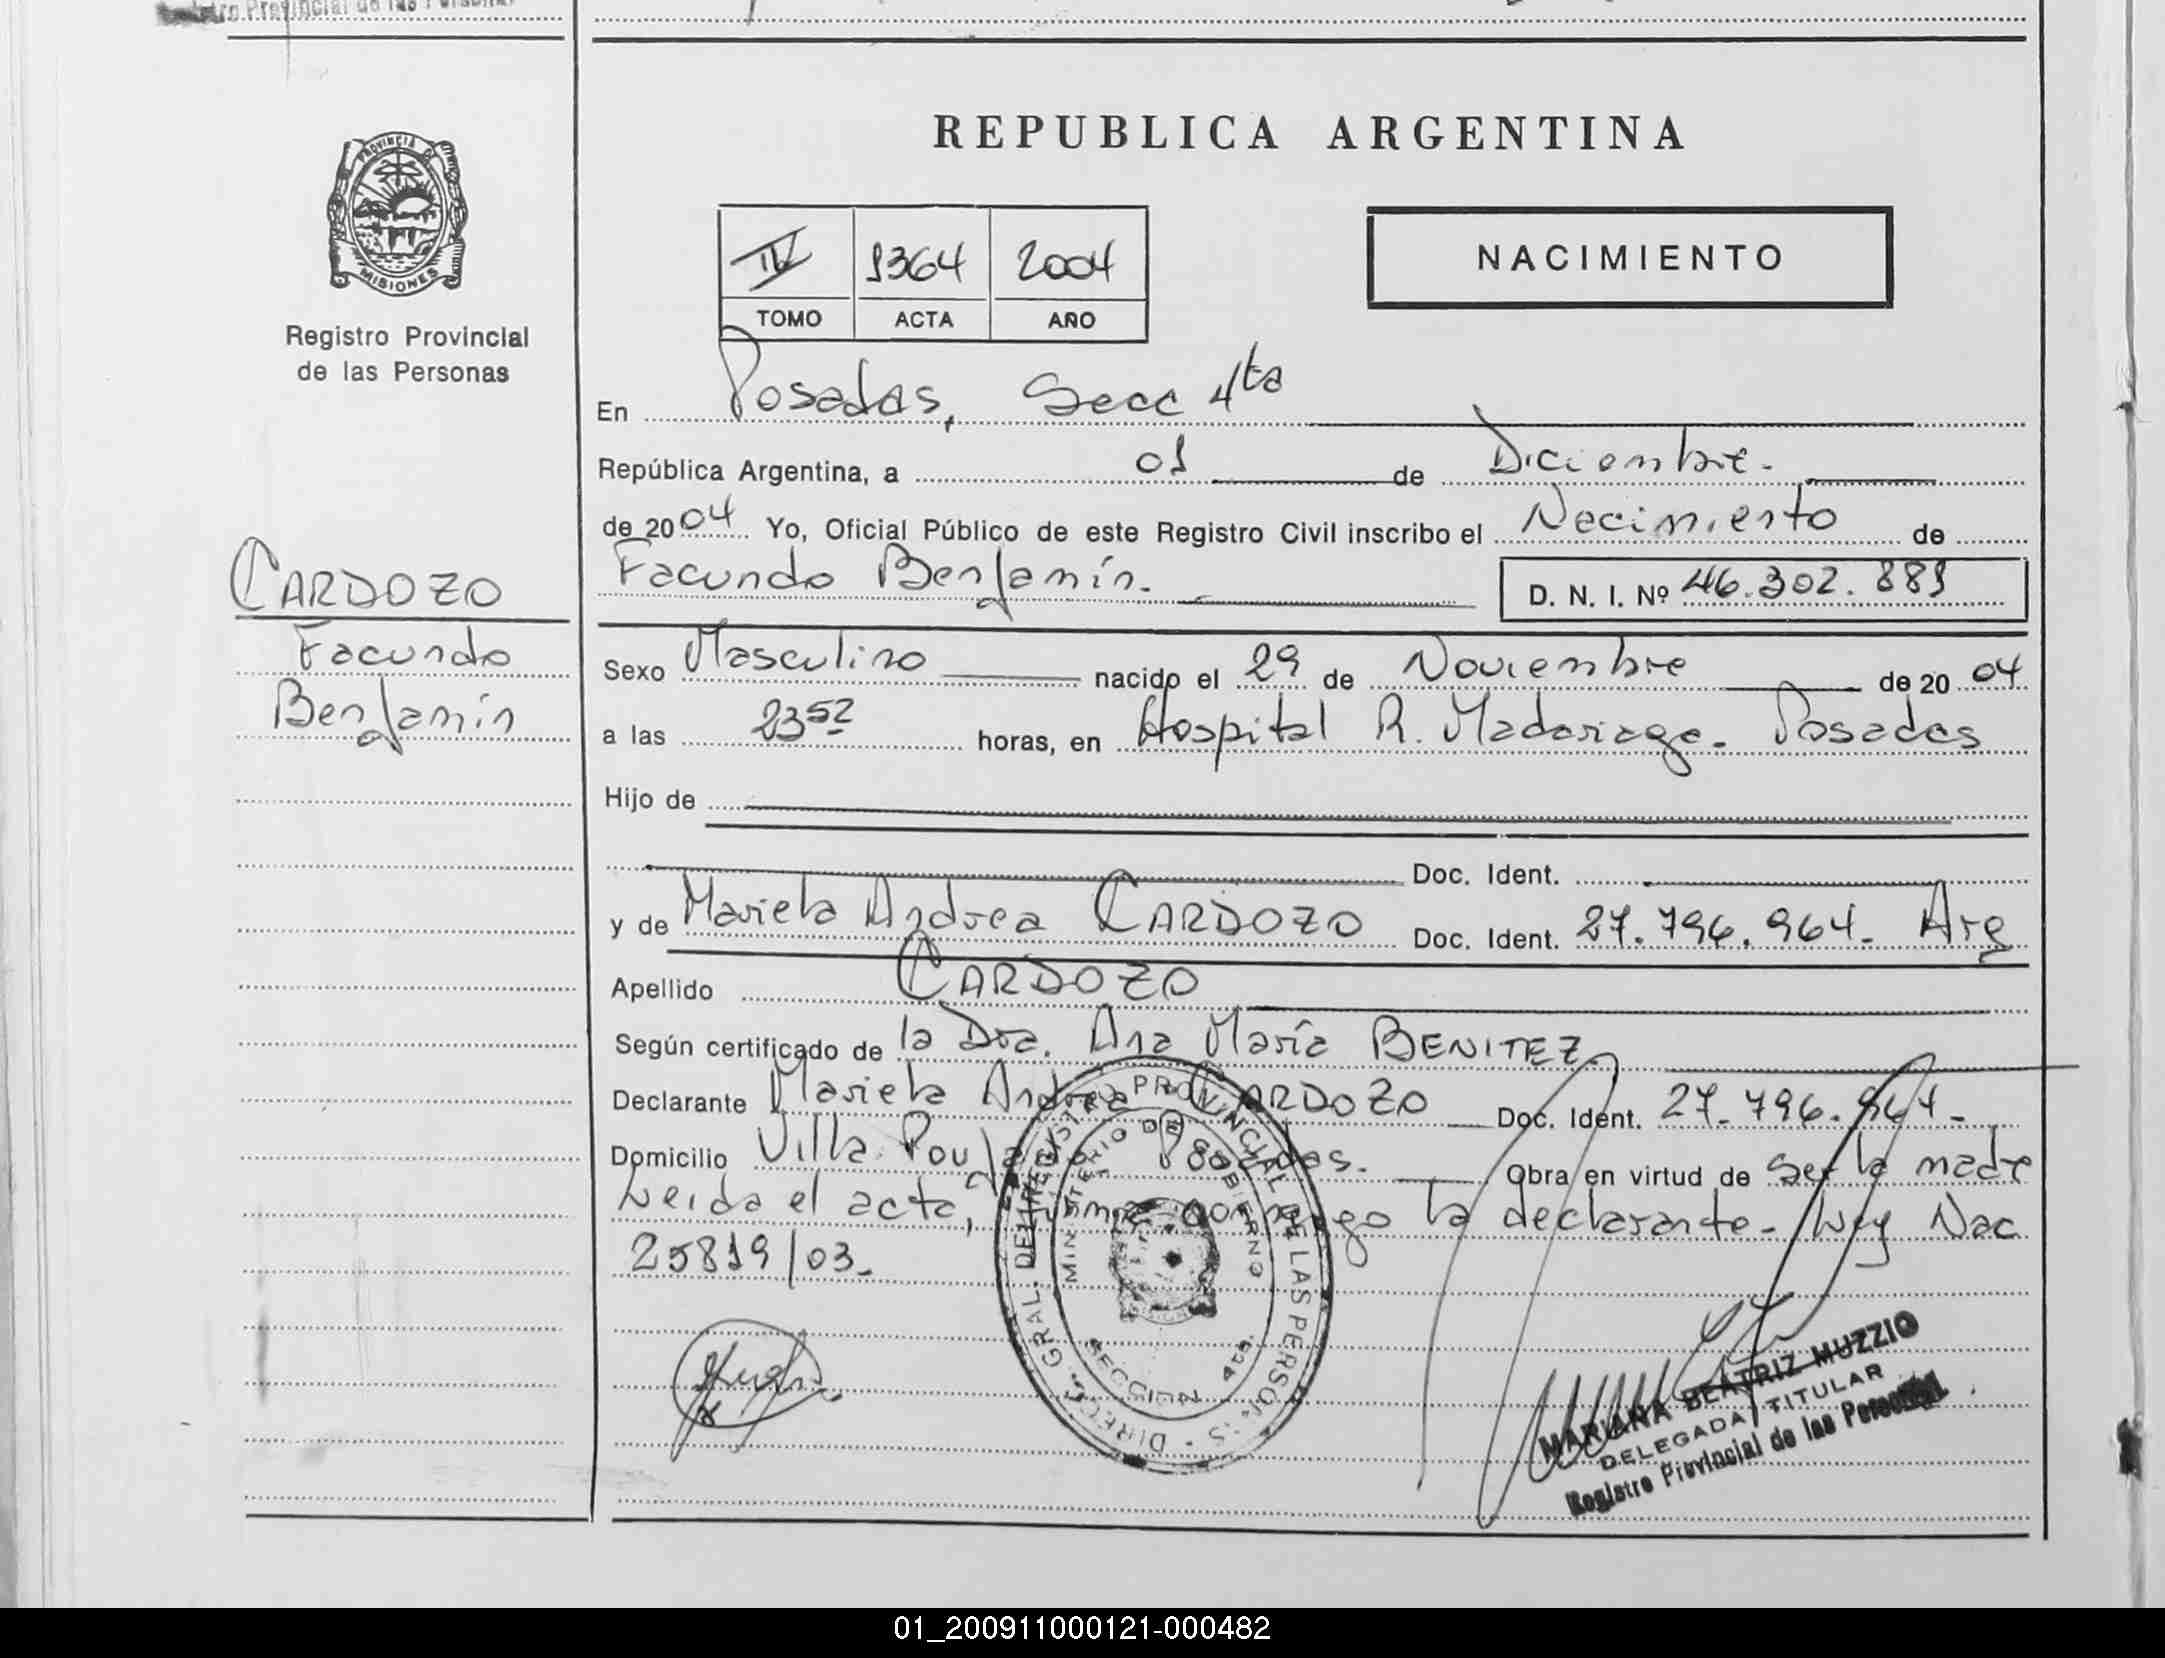 Registro Provincial de las Personas
PROVINCIA DE
MISIONES
Registro Provincial
de las Personas
CARDOZO
Facundo
Benjamín
REPUBLICA ARGENTINA
IV 1364 2004
TOMO ACTA AÑO
NACIMIENTO
En Posadas, Secc 4ta
República Argentina, a 01 de Diciembre.
de 2004 Yo, Oficial Público de este Registro Civil inscribo el Nacimiento de
Facundo Benjamín. D. N. I. Nº 46.302.881
Sexo Masculino nacido el 29 de Noviembre de 2004
a las 23 52 horas, en Hospital R. Madariaga. Posadas
Hijo de
Doc. Ident.
y de Mariela Andrea CARDOZO Doc. Ident. 27.796.964. Arg
Apellido CARDOZO
Según certificado de la Dra. Ana María BENITEZ
Declarante Mariela Andrea CARDOZO Doc. Ident. 27.796.964.
Domicilio Villa Posadas. Obra en virtud de ser la madre
Leida el acta, firma conmigo la declarante. Ley Nac
25819/03.
DIRECC. GRAL. DEL REGISTRO PROVINCIAL DE LAS PERSONAS
MINISTERIO DE GOBIERNO
SECCION 4ta.
MARIANA BEATRIZ MUZZIO
DELEGADA TITULAR
Registro Provincial de las Personas
01_200911000121-000482